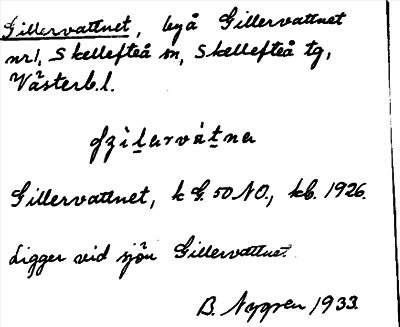 Gillervattnet, byå Gillervattnet
nr 1, Skellefteå sn, Skellefteå tg,
Västerb.l.
Gillervattnet, k G. 50 NO., kb. 1926.
Ligger vid sjön Gillervattnet.
B. Nygren 1933.